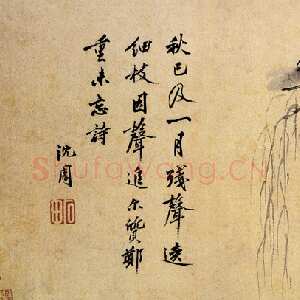 秋已及一月殘聲遶
細枝因聲追尔質鄭
重未忘詩
沈周
Shufawang.CN